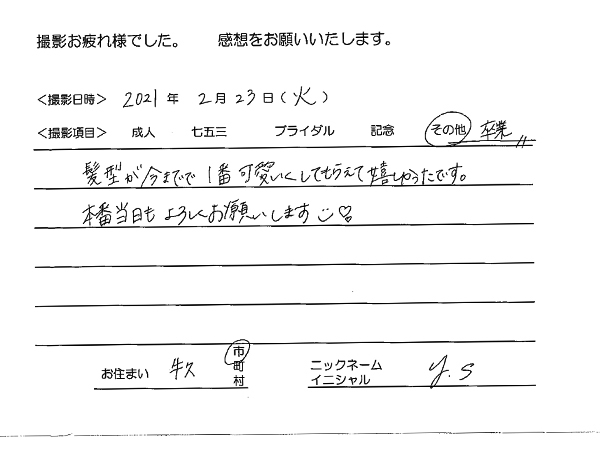 撮影お疲れ様でした。 感想をお願いいたします。
<撮影日時> 2021年 2月23日(火)
<撮影項目> 成人 七五三 ブライダル 記念 その他 卒業
髪型が今までで1番可愛いくしてもらえて嬉しかったです。
本番当日もよろしくお願いします
お住まい 牛久 市町村 ニックネーム イニシャル y.s